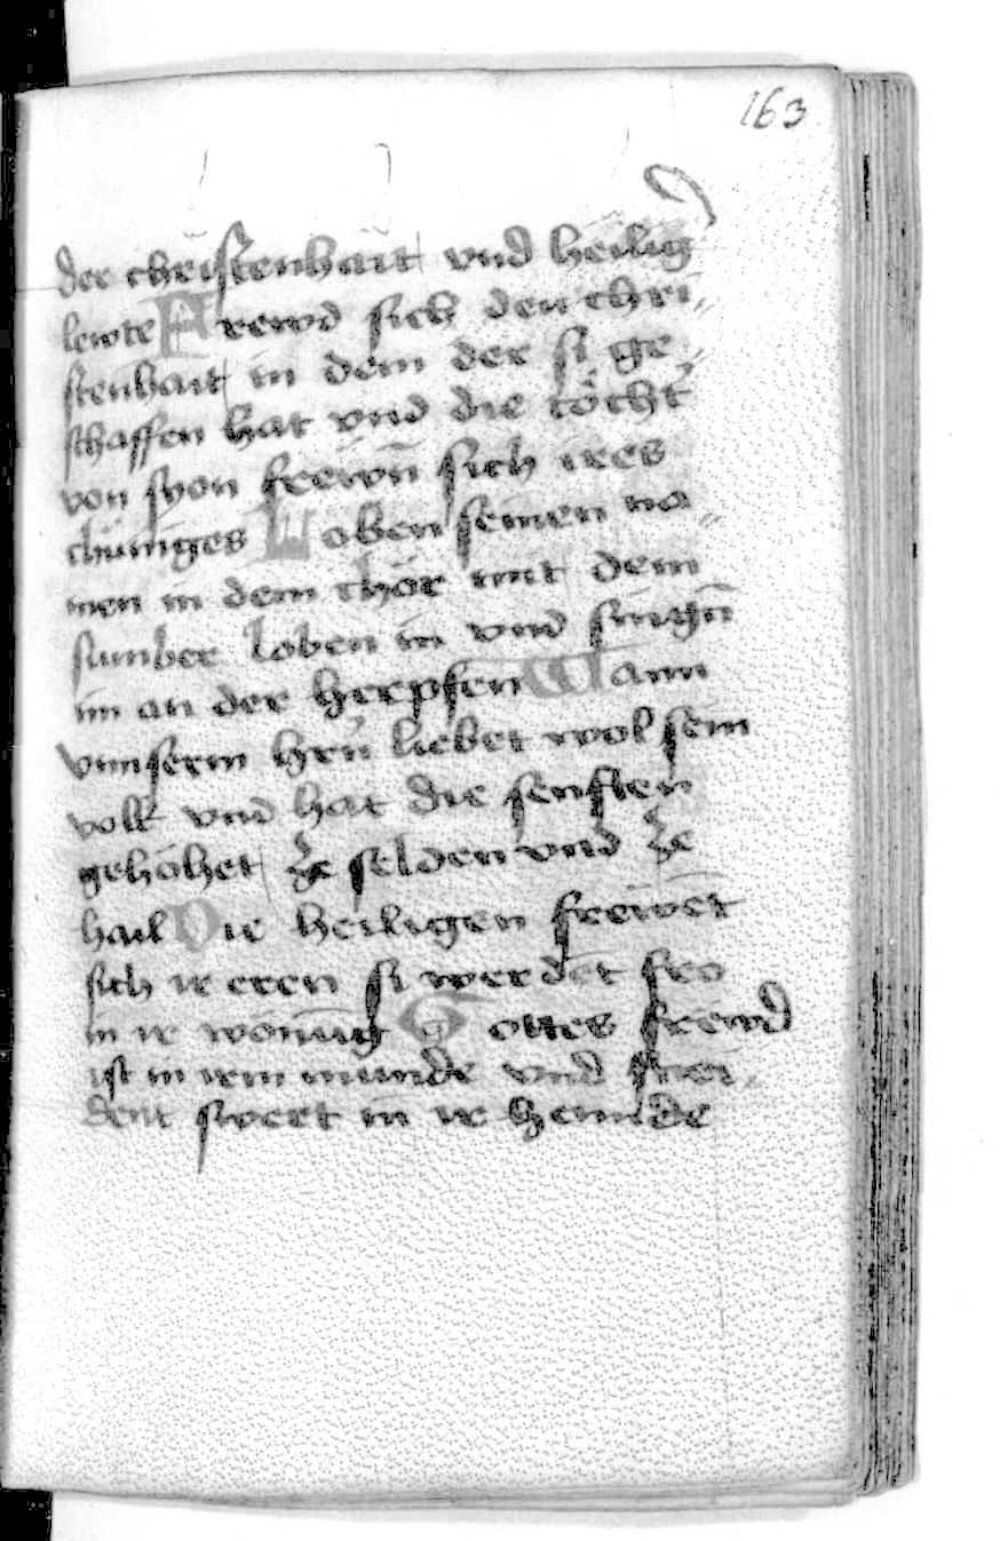 163
der christenhait vnd heilig
lewte Frewd sich den chri„
stenhait in dem der si ge„
schaffen hat vnd die töcht̄
von syon frewn̄ sich ires
chüniges Loben seinen na„
men in dem chör mit dem
sumber loben in vnd singn̄
im an der herpfen Wann
vnnserm hrn̄ liebet wol sein
volk vnd hat die senften
gehöhet ze selden vnd ze
hail Die heiligen frewēt
sich ir eren si werdēt fro
in ir wonūg Gottes frewd
ist in irm munde vnd snei„
dent swert in ir hennde